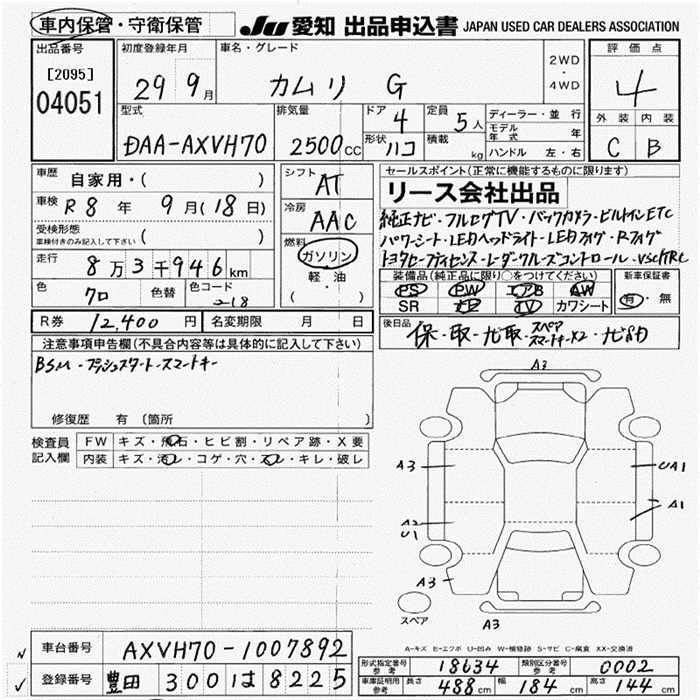 車内保管・守衛保管 JU 愛知 出品申込書 JAPAN USED CAR DEALERS ASSOCIATION
出品番号 初度登録年月 車名・グレード 評価点
[2095] 29 9月 カムリ G 2WD・4WD 4
04051 型式 排気量 ドア 定員 ディーラー・並行 外装 内装
DAA-AXVH70 2500CC 4 5人 モデル年式 年 C B
形状 ハコ 積載 kg ハンドル 左・右
車歴 自家用・( ) シフト AT セールスポイント(正常に機能するものに限ります)
車検 R8年 9月(18日) 冷房 AAC リース会社出品
受検形態 ( ) 純正ナビ・フルセグTV・バックカメラ・ビルトインETC
車検付きのみ記入して下さい 燃料 ガソリン パワーシート・LEDヘッドライト・LEDフォグ・Rフォグ
走行 8万3千946km 軽・油 トヨタセーフティセンス・レーダークルーズコントロール・VSC/TRC
色 クロ 色替 色コード 218 ( ) 装備品(純正品に限り○をつけてください) 新車保証書
PS PW エアB AW 有・無
SR ナビ TV カワシート
R券 12,400円 名変期限 月 日 後日品 保・取・ナビ取・スペアスマートキーX2・
注意事項申告欄(不具合内容等は具体的に記入して下さい)
BSM・プッシュスタート・スマートキー
修復歴 有 (箇所 )
検査員記入欄 FW キズ・飛石・ヒビ割・リペア跡・X要
内装 キズ・汚レ・コゲ・穴・スレ・キレ・破レ
A3
A3 UA1
A1
A2
U1
A3
スペア A3
A-キズ E-エクボ U-凹み W-補修跡 S-サビ C-腐食 XX-交換済
車台番号 AXVH70-1007892 形式指定番号 参考 18634 類別区分番号 参考 0002
登録番号 豊田 300 は 8225 車庫証明用 参考 長さ 488cm 幅 184cm 高さ 144cm